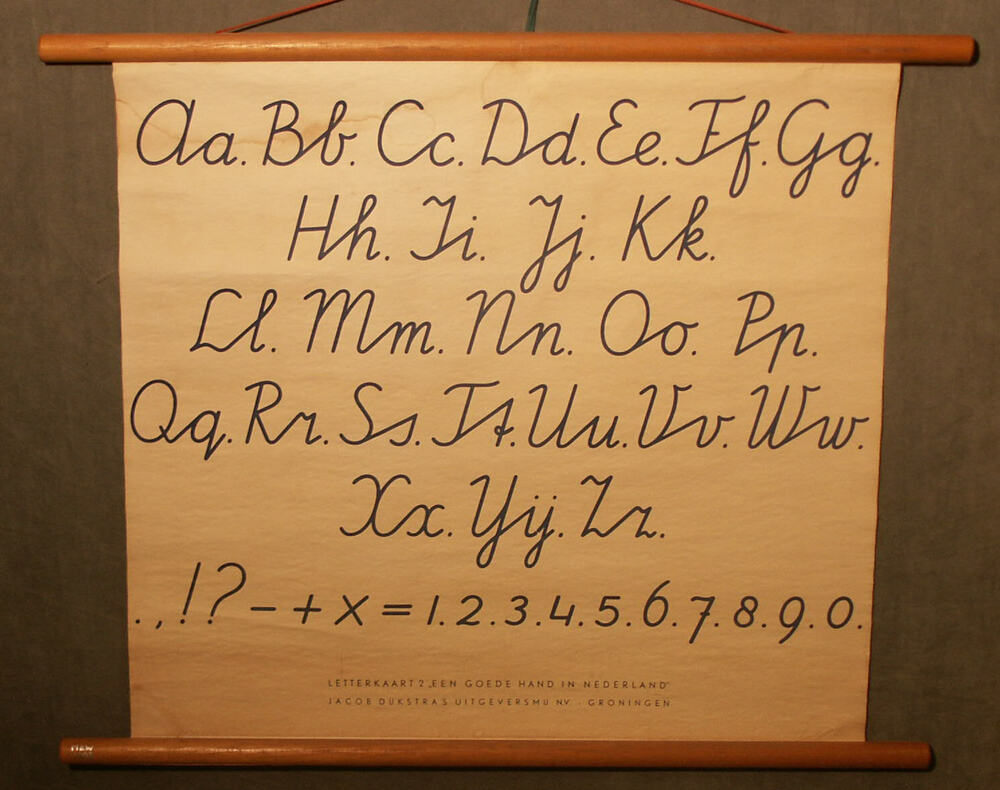 Aa. Bb. Cc. Dd. Ee. Ff. Gg.
Hh. Ii. Jj. Kk.
Ll. Mm. Nn. Oo. Pp.
Qq. Rr. Ss. Tt. Uu. Vv. Ww.
Xx. Yij. Zz.
., !? - + x = 1. 2. 3. 4. 5. 6. 7. 8. 9. 0.
LETTERKAART 2 „EEN GOEDE HAND IN NEDERLAND"
JACOB DIJKSTRA'S UITGEVERSMIJ NV. - GRONINGEN